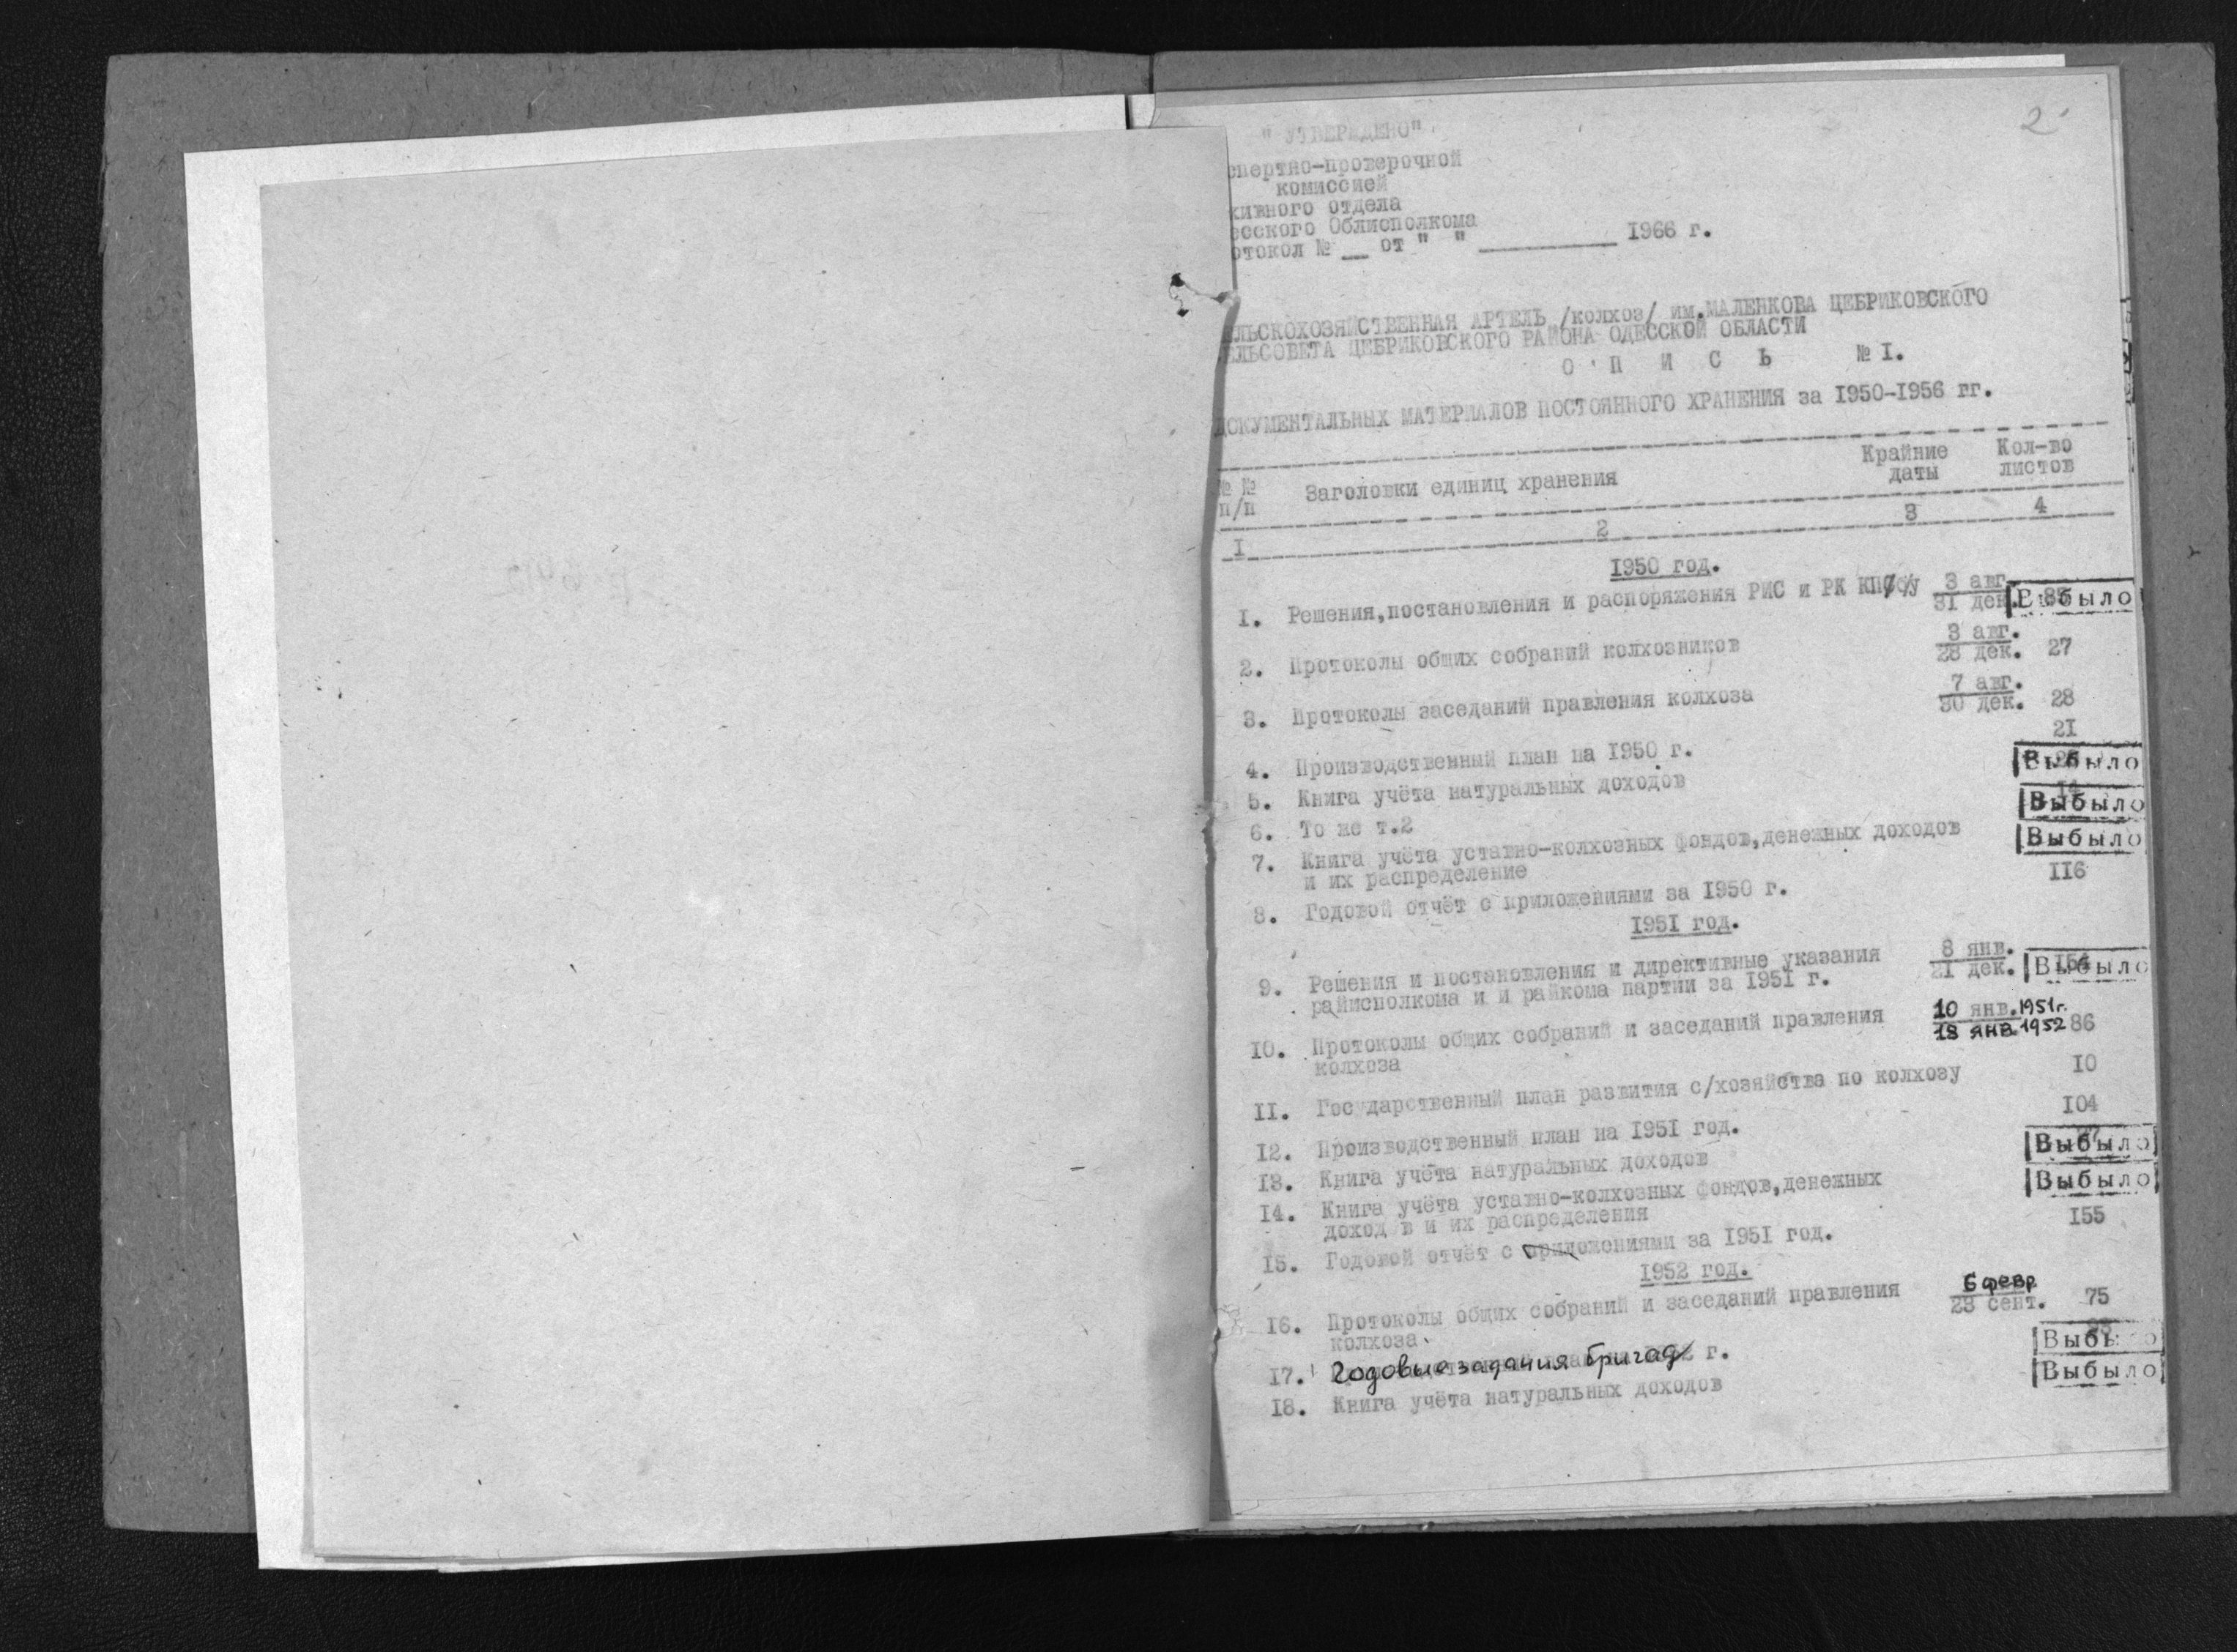 2
"УТВЕРЖДЕНО"
спертно-проверочной
комиссией
хивного отдела
есского Облисполкома
отокол № __ от " " ________ 1966 г.
ЛЬСКОХОЗЯЙСТВЕННАЯ АРТЕЛЬ /колхоз/ им.МАЛЕНКОВА ЦЕБРИКОВСКОГО
ЕЛЬСОВЕТА ЦЕБРИКОВСКОГО РАЙОНА ОДЕССКОЙ ОБЛАСТИ
О П И С Ь № I.
ДОКУМЕНТАЛЬНЫХ МАТЕРИАЛОВ ПОСТОЯННОГО ХРАНЕНИЯ за 1950-1956 гг.
№ № п/п Заголовки единиц хранения Крайние даты Кол-во листов
I 2 3 4
1950 год.
I. Решения,постановления и распоряжения РИС и РК КП/б/У 3 авг. 31 дек. Выбыло
2. Протоколы общих собраний колхозников 3 авг. 28 дек. 27
3. Протоколы заседаний правления колхоза 7 авг. 30 дек. 28
4. Производственный план на 1950 г. 21
5. Книга учёта натуральных доходов Выбыло
6. То же т.2 Выбыло
7. Книга учёта уставно-колхозных фондов,денежных доходов Выбыло
и их распределение
8. Годовой отчёт с приложениями за 1950 г. II6
1951 год.
9. Решения и постановления и директивные указания 8 янв. 21 дек. Выбыло
райисполкома и и райкома партии за 1951 г.
10. Протоколы общих собраний и заседаний правления 10 янв.1951г. 18 янв.1952 86
колхоза
II. Государственный план развития с/хозяйства по колхозу 10
12. Производственный план на 1951 год. 104
13. Книга учёта натуральных доходов Выбыло
14. Книга учёта уставно-колхозных фондов,денежных Выбыло
доход в и их распределения
15. Годовой отчёт с приложениями за 1951 год. 155
1952 год.
16. Протоколы общих собраний и заседаний правления 6 февр 23 сент. 75
колхоза
17. Годовые задания бригад г. Выбыло
18. Книга учёта натуральных доходов Выбыло